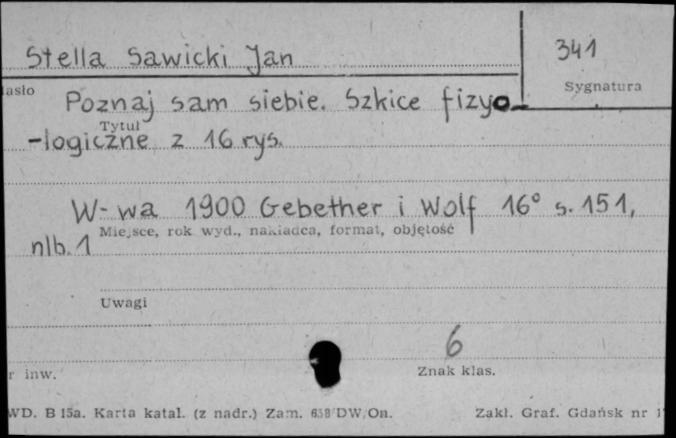 Stella Sawicki Jan
341
asło
Sygnatura
Poznaj sam siebie. Szkice fizyo-
Tytuł
-logiczne z 16 rys.
W-wa 1900 Gebether i Wolf 16° s. 151,
Miejsce, rok wyd., nakładca, format, objętość
nlb. 1
Uwagi
6
r inw.
Znak klas.
WD. B 15a. Karta katal. (z nadr.) Zam. 658/DW/On.
Zakł. Graf. Gdańsk nr 1